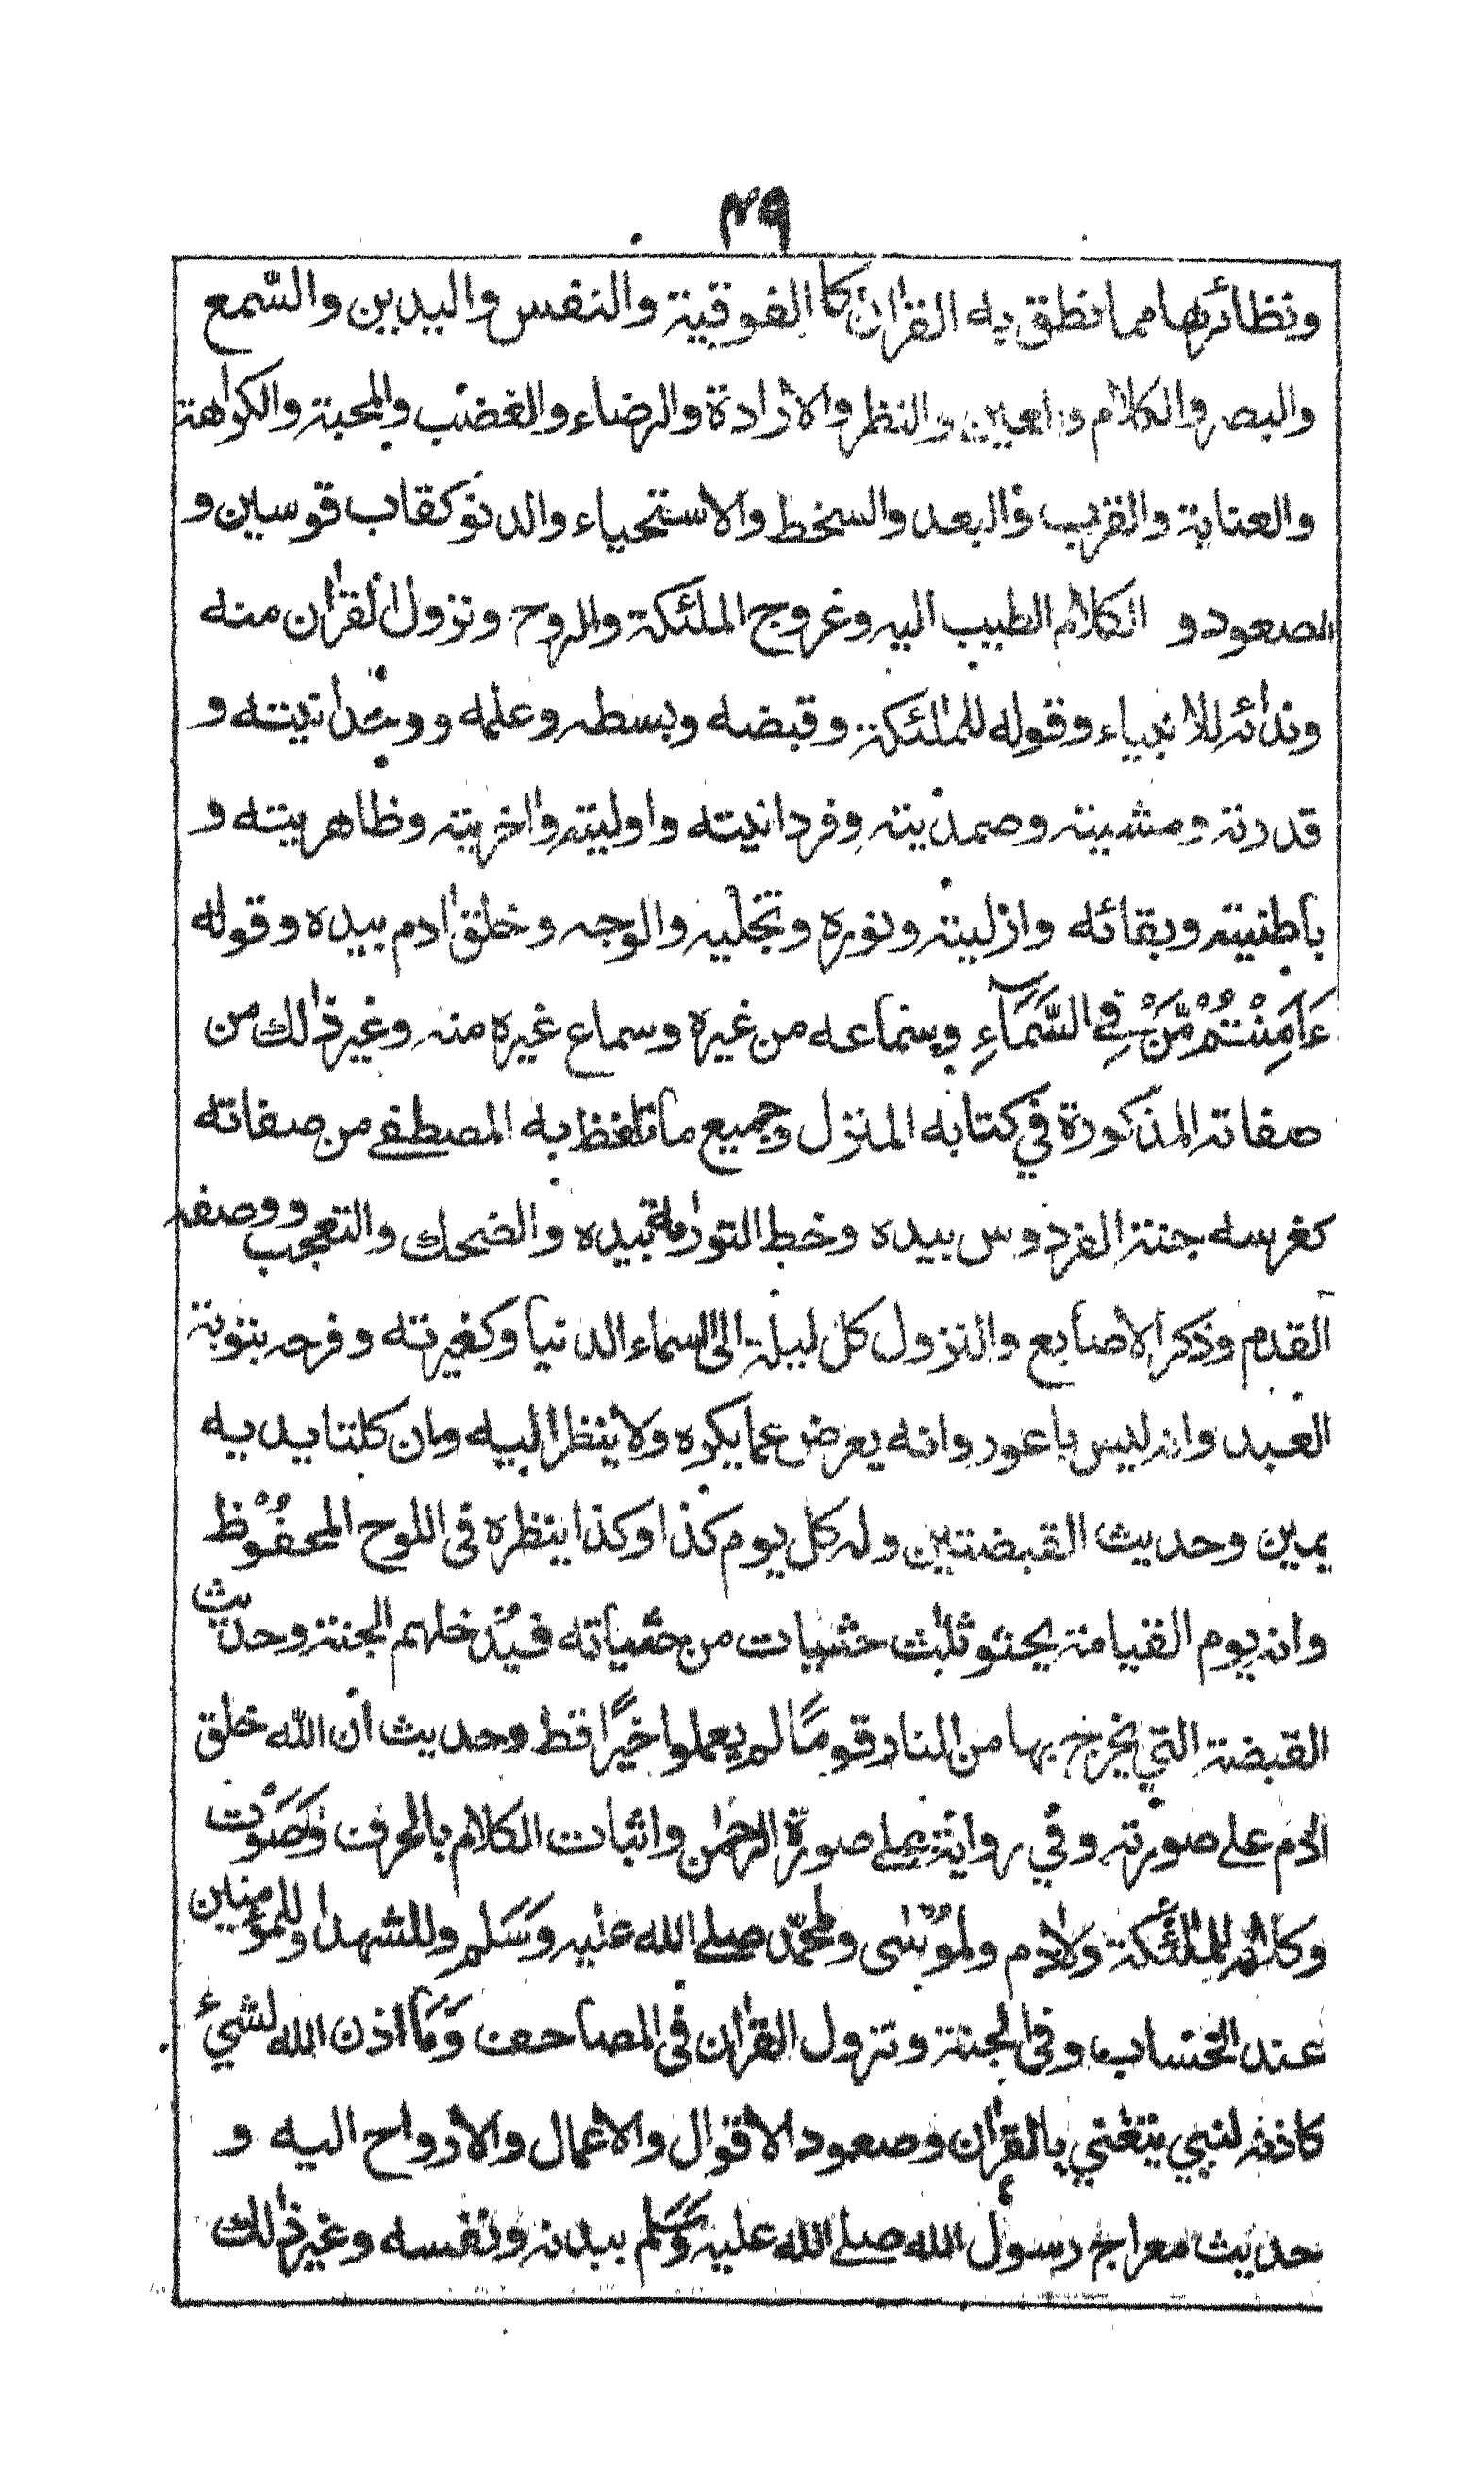 ۴۹
ونظائرها مما نطق به القرٰان كا الفوقية والنفس واليدين والسّمع
والبصر والكلام والعين والنظر والارادة والرضاء والغضب والمحبة والكراهة
والعناية والقرب والبعد والسخط والاستحياء والدنو كقاب قوسين و
الصعود و الكلام الطيب اليه وعروج الملئكة والروح ونزول القرٰان منه
وندائه للانبياء وقوله للملئكة وقبضه وبسطه وعلمه ووحدانيته و
قدرته ومشيته وصمديته وفردانيته واوليته واٰخريته وظاهريته و
باطنيته وبقائه وازليته ونوره وتجليه والوجه وخلق اٰدم بيده وقوله
ءَاَمِنْتُمْ مَّنْ فِي السَّمَآءِ وسماعه من غيره وسماع غيره منه وغير ذٰلك من
صفاته المذكورة في كتابه المنزل وجميع ما تلفظ به المصطفى من صفاته
كغرسه جنة الفردوس بيده وخط التورٰىة بيده والضحك والتعجب ووصفه
القدم وذكر الاصابع والنزول كل ليلة الى السماء الدنيا وكغيرته وفرحه بتوبة
العبد وانه ليس باعور وانه يعرض عما يكره ولا ينظر اليه وان كلتا يديه
يمين وحديث القبضتين وله كل يوم كذا وكذا ينظره في اللوح المحفُوْظ
وانه يوم القيامة يحثو ثلٰث حثيات من حثياته فيُدخلهم الجنة وحديث
القبضة التي يخرج بها من النار قومًا لم يعملوا خيرًا قط وحديث ان الله خلق
اٰدم على صورته وفي رواية على صورة الرحمٰن واثبات الكلام بالحرف وَصَوْت
وكلامه للملٰئكة ولاٰدم ولمُوْسٰى ولمحمّد صلى الله عليه وَسَلم وللشهداء وللمؤمنين
عند الحساب وفي الجنة ونزول القرٰان في المصاحف وَمَا اذن الله لشيء
كاذنه لنبي يتغنى بالقرٰان وصعود الاقوال والاعمال والارواح اليه و
حديث معراج رسول الله صلى الله عليه وَسَلم ببدنه ونفسه وغير ذٰلك